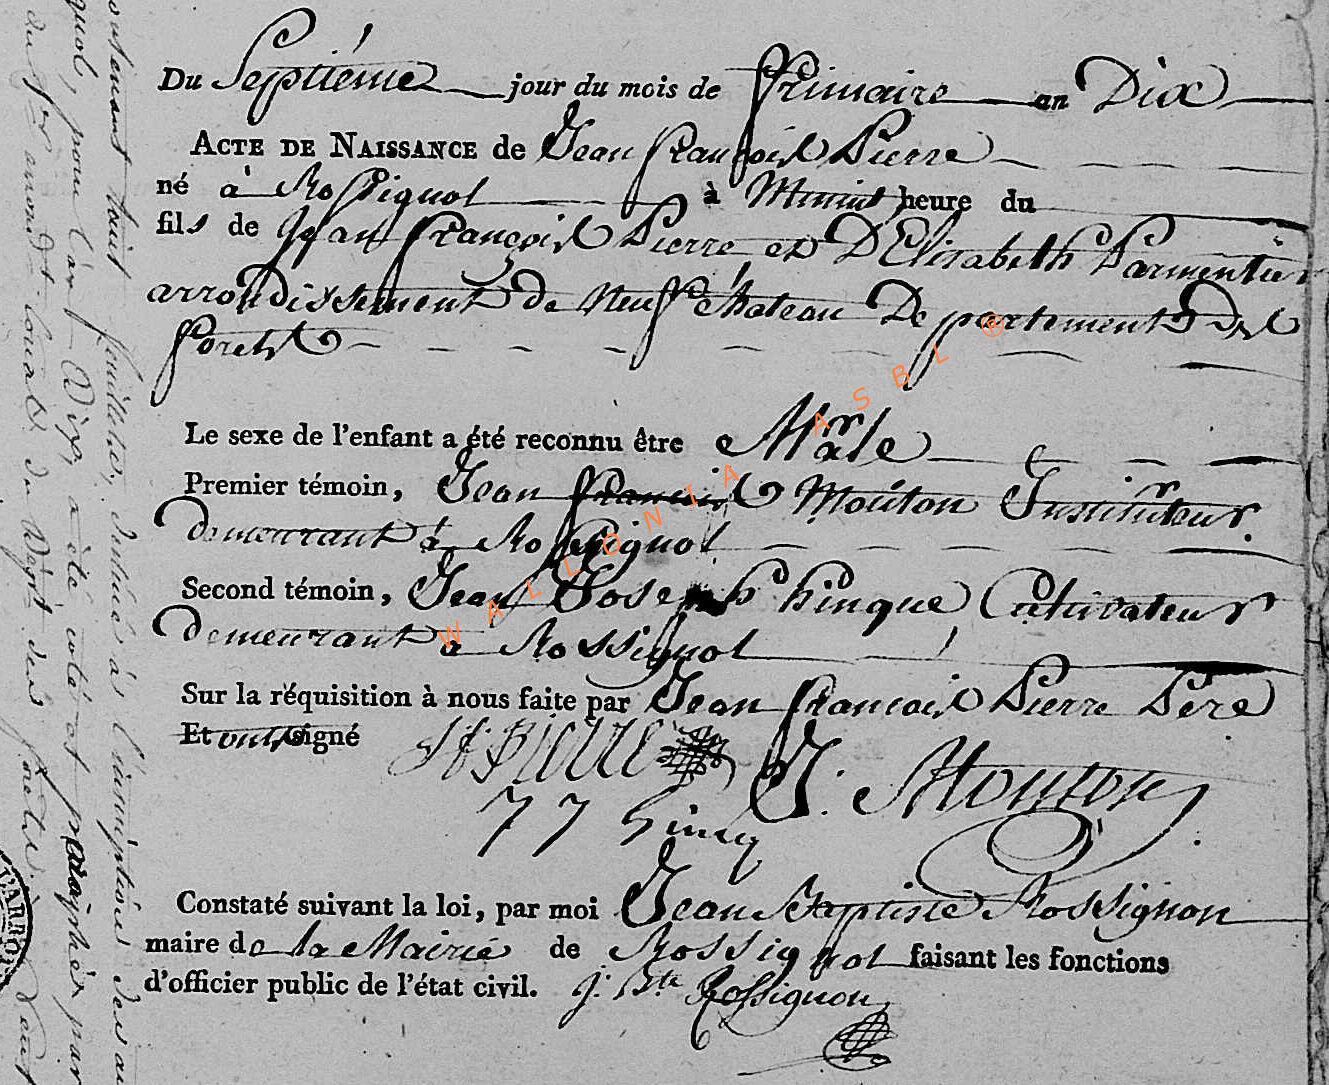 Du Septiéme jour du mois de frimaire an Dix
ACTE DE NAISSANCE de Jean françois Pierre
né à Rossignol à Minuit heure du
fils de Jean françois Pierre et D'Elisabeth Parmentier
arrondissement de Neufchateau Departement Des
forets
Le sexe de l'enfant a été reconnu être Male
Premier témoin, Jean françois Mouton Instituteur
demeurant à Rossignol
Second témoin, Jean Joseph hinque Cultivateur
demeurant à Rossignol
Sur la réquisition à nous faite par Jean françois Pierre Pere
Et ont signé
J f PIERRE J. Mouton
J J hincq
Constaté suivant la loi, par moi Jean Baptiste Rossignon
maire de la Mairie de Rossignol faisant les fonctions
d'officier public de l'état civil. j. Bte Rossignon
WALLONIA ASBL ®
contenant huit feuillets, destiné à l'inscription des
pour l'an Dix, a été coté et paraphé par